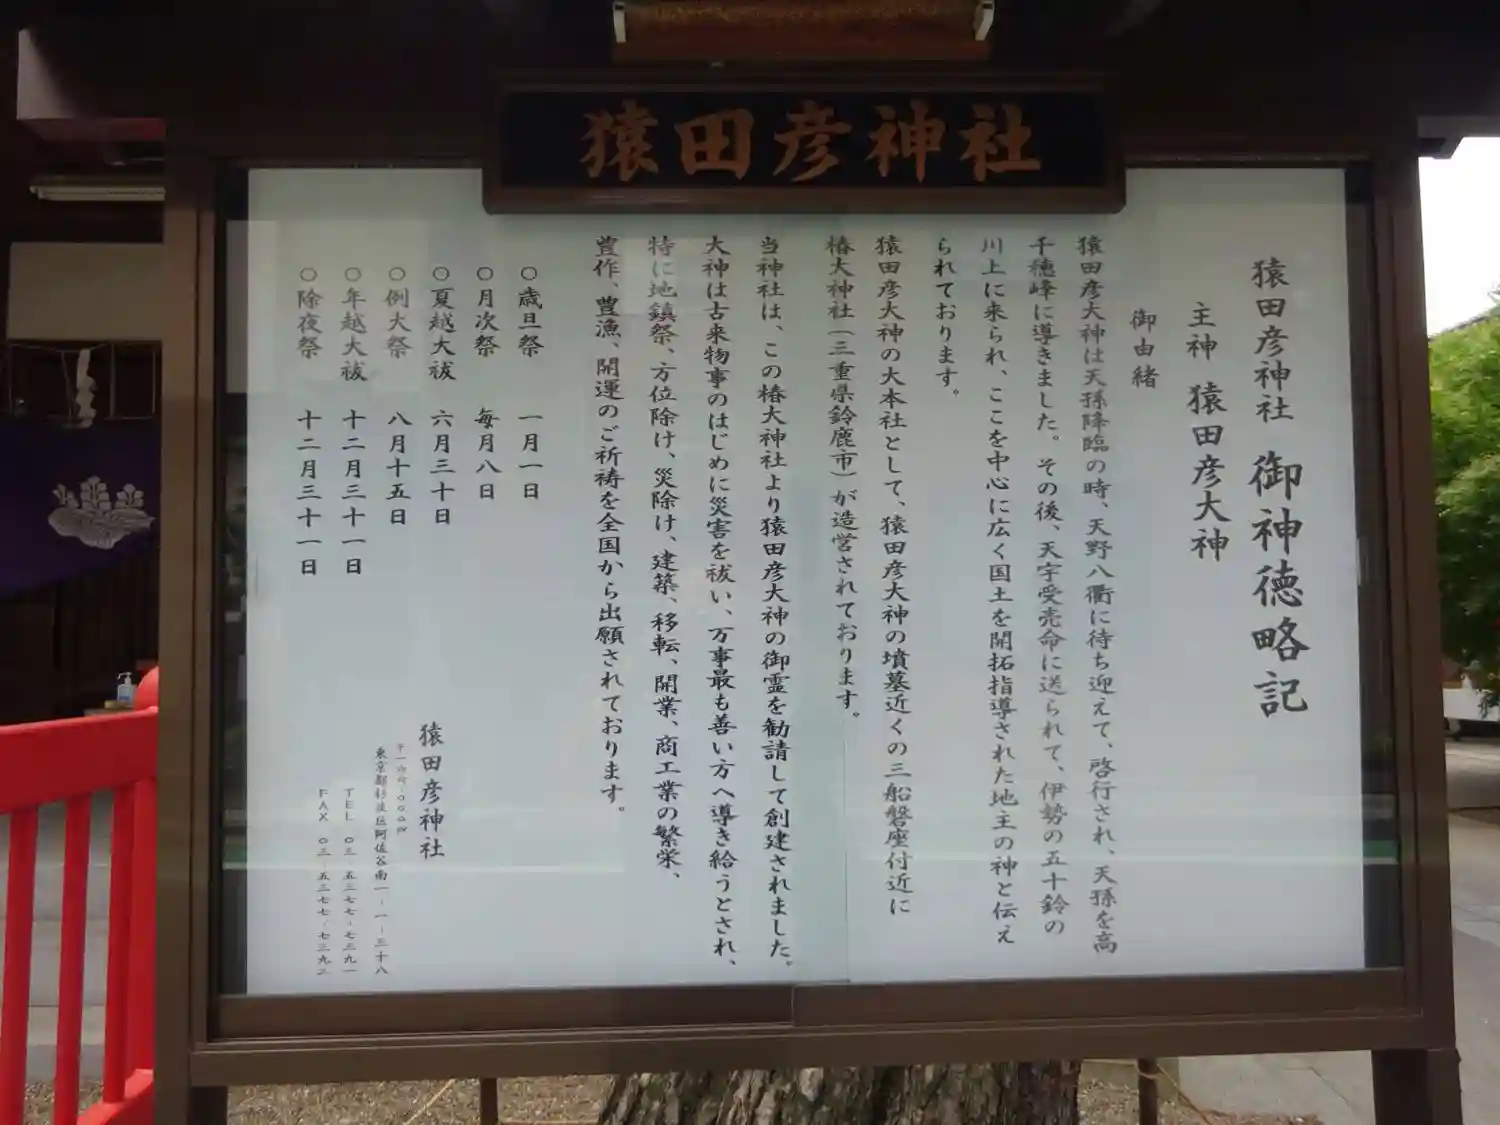 猿田彦神社
猿田彦神社 御神徳略記
主神 猿田彦大神
御由緒
猿田彦大神は天孫降臨の時、天野八衢に待ち迎えて、啓行され、天孫を高
千穂峰に導きました。その後、天宇受売命に送られて、伊勢の五十鈴の
川上に来られ、ここを中心に広く国土を開拓指導された地主の神と伝え
られております。
猿田彦大神の大本社として、猿田彦大神の墳墓近くの三船磐座付近に
椿大神社(三重県鈴鹿市)が造営されております。
当神社は、この椿大神社より猿田彦大神の御霊を勧請して創建されました。
大神は古来物事のはじめに災害を祓い、万事最も善い方へ導き給うとされ、
特に地鎮祭、方位除け、災除け、建築、移転、開業、商工業の繁栄、
豊作、豊漁、開運のご祈祷を全国から出願されております。
○歳旦祭 一月一日
○月次祭 毎月八日
○夏越大祓 六月三十日
○例大祭 八月十五日
○年越大祓 十二月三十一日
○除夜祭 十二月三十一日
猿田彦神社
〒一六六-〇〇〇四
東京都杉並区阿佐谷南一-一-三十八
TEL 〇三-五三七七-七三九一
FAX 〇三-五三七七-七三九二